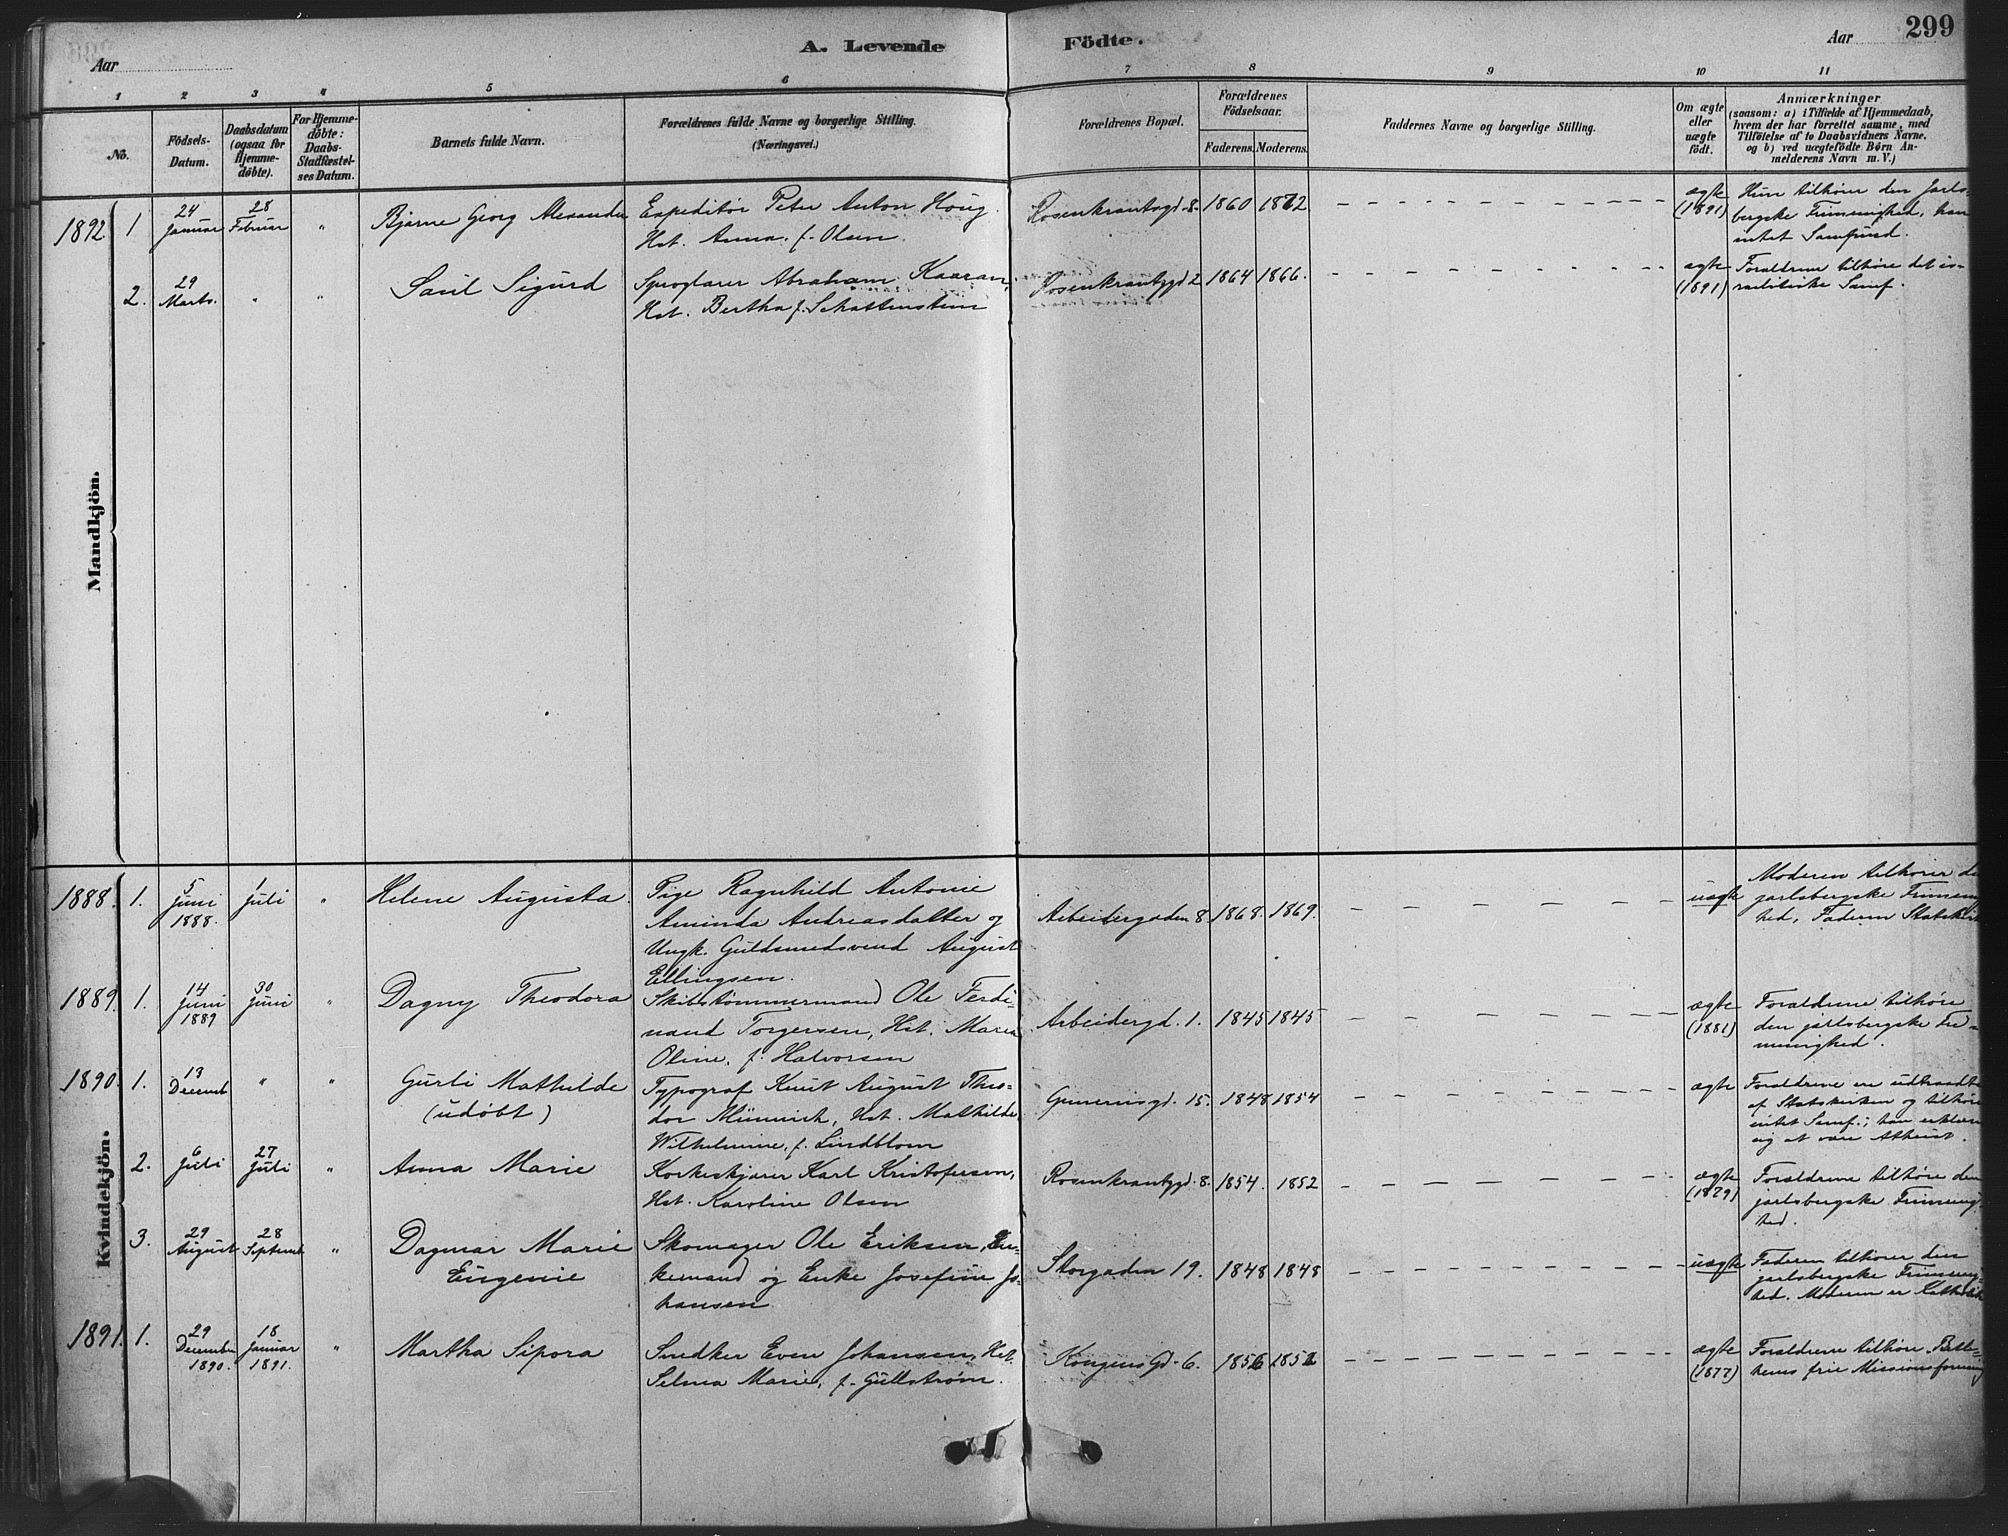 299
A. Levende Födte.
Aar
Aar
1 2 3 4 5 6 7 8 9 10 11
No.
Födsels-
Datum.
Daabsdatum
(ogsaa for
Hjemme-
döbte).
For Hjemme-
döbte:
Daabs-
Stadfæstel-
ses Datum.
Barnets fulde Navn.
Forældrenes fulde Navne og borgerlige Stilling.
(Næringsvei.)
Forældrenes Bopæl.
Forældrenes
Födselsaar.
Faderens. Moderens.
Faddernes Navne og borgerlige Stilling.
Om ægte
eller
uægte
födt.
Anmærkninger
(saasom: a) i Tilfælde af Hjemmedaab,
hvem der har forrettet samme, med
Tilföielse af to Daabsvidners Navne.
og b) ved uægtefödte Börn An-
melderens Navn m. V.)
Mandkjön.
1892 1 24 Januar 28 Februar " Bjarne Georg Alexander
Expeditør Peter Anton Houg.
Hst. Anna f. Olsen.
Rosenkrantzgd. 8. 1860 1872
ægte
(1891)
Hun tilhører den Jarls-
bergske Frimenighed, han
intet Samfund.
2. 29 Marts. " " Saul Sigurd
Sproglærer Abraham
Hst. Bertha f. Schattenstein
Rosenkrantzgd 2 1864 1866.
ægte
(1891)
Forældrene tilhøre det is-
raelitiske Samf.
Kvindekjön.
1888. 1. 5 Juni 1888. 1 Juli " Helene Augusta.
Pige Ragnhild Antonie
Aminda Andreasdatter og
Ungk. Guldsmedsvend August
Ellingsen.
Arbeidergaden 8. 1868. 1869.
uægte
Moderen tilhører den
jarlsbergske Frimenig-
hed, Faderen Statskirk
1889. 1. 14 Juni 1889 30 Juni " Dagny Theodora
Skibstømmermand Ole Ferdi-
nand Torgersen, Hst. Maren
Oline, f. Halvorsen
Arbeidergd. 1. 1845 1845
ægte
(1881)
Forældrene tilhøre
den jarlsbergske Fri-
menighed.
1890. 1. 13 Decemb " " Gurli Mathilde
(udøbt)
Typograf Knut August Theo-
dor Münnich, Hst. Mathilde
Wilhelmine, f. Lindblom
15. 1848 1854
ægte
Forældrene ere udtraadte
af Statskirken og tilhøre
intet Samf.; han erklærer
sig at være Atheist.
2. 6 Juli 27 Juli " Anna Marie
Korkeskjærer Karl Kristofersen,
Hst. Karoline Olsen
Rosenkrantzgd. 8. 1854. 1852
ægte
(1879)
Forældrene tilhøre den
jarlsbergske Frimenig-
hed.
3. 29 August 28 Septemb " Dagmar Marie
Eugenie
Skomager Ole Eriksen, En-
kemand og Enke Josefine Jo-
hansen
Storgaden 19. 1848 1848
uægte
Faderen tilhører den
jarlsbergske Frimenig-
hed. Moderen er Katholik
1891. 1. 29 December 1890. 18 Januar 1891. " Martha Sipora
Snedker Even Johansen, Hst.
Selma Marie, f. Gullstrøm.
Kongens Gd. 6. 1856 1852
ægte
(1877)
Forældrene tilhøre Betle-
hems frie Missionsforening